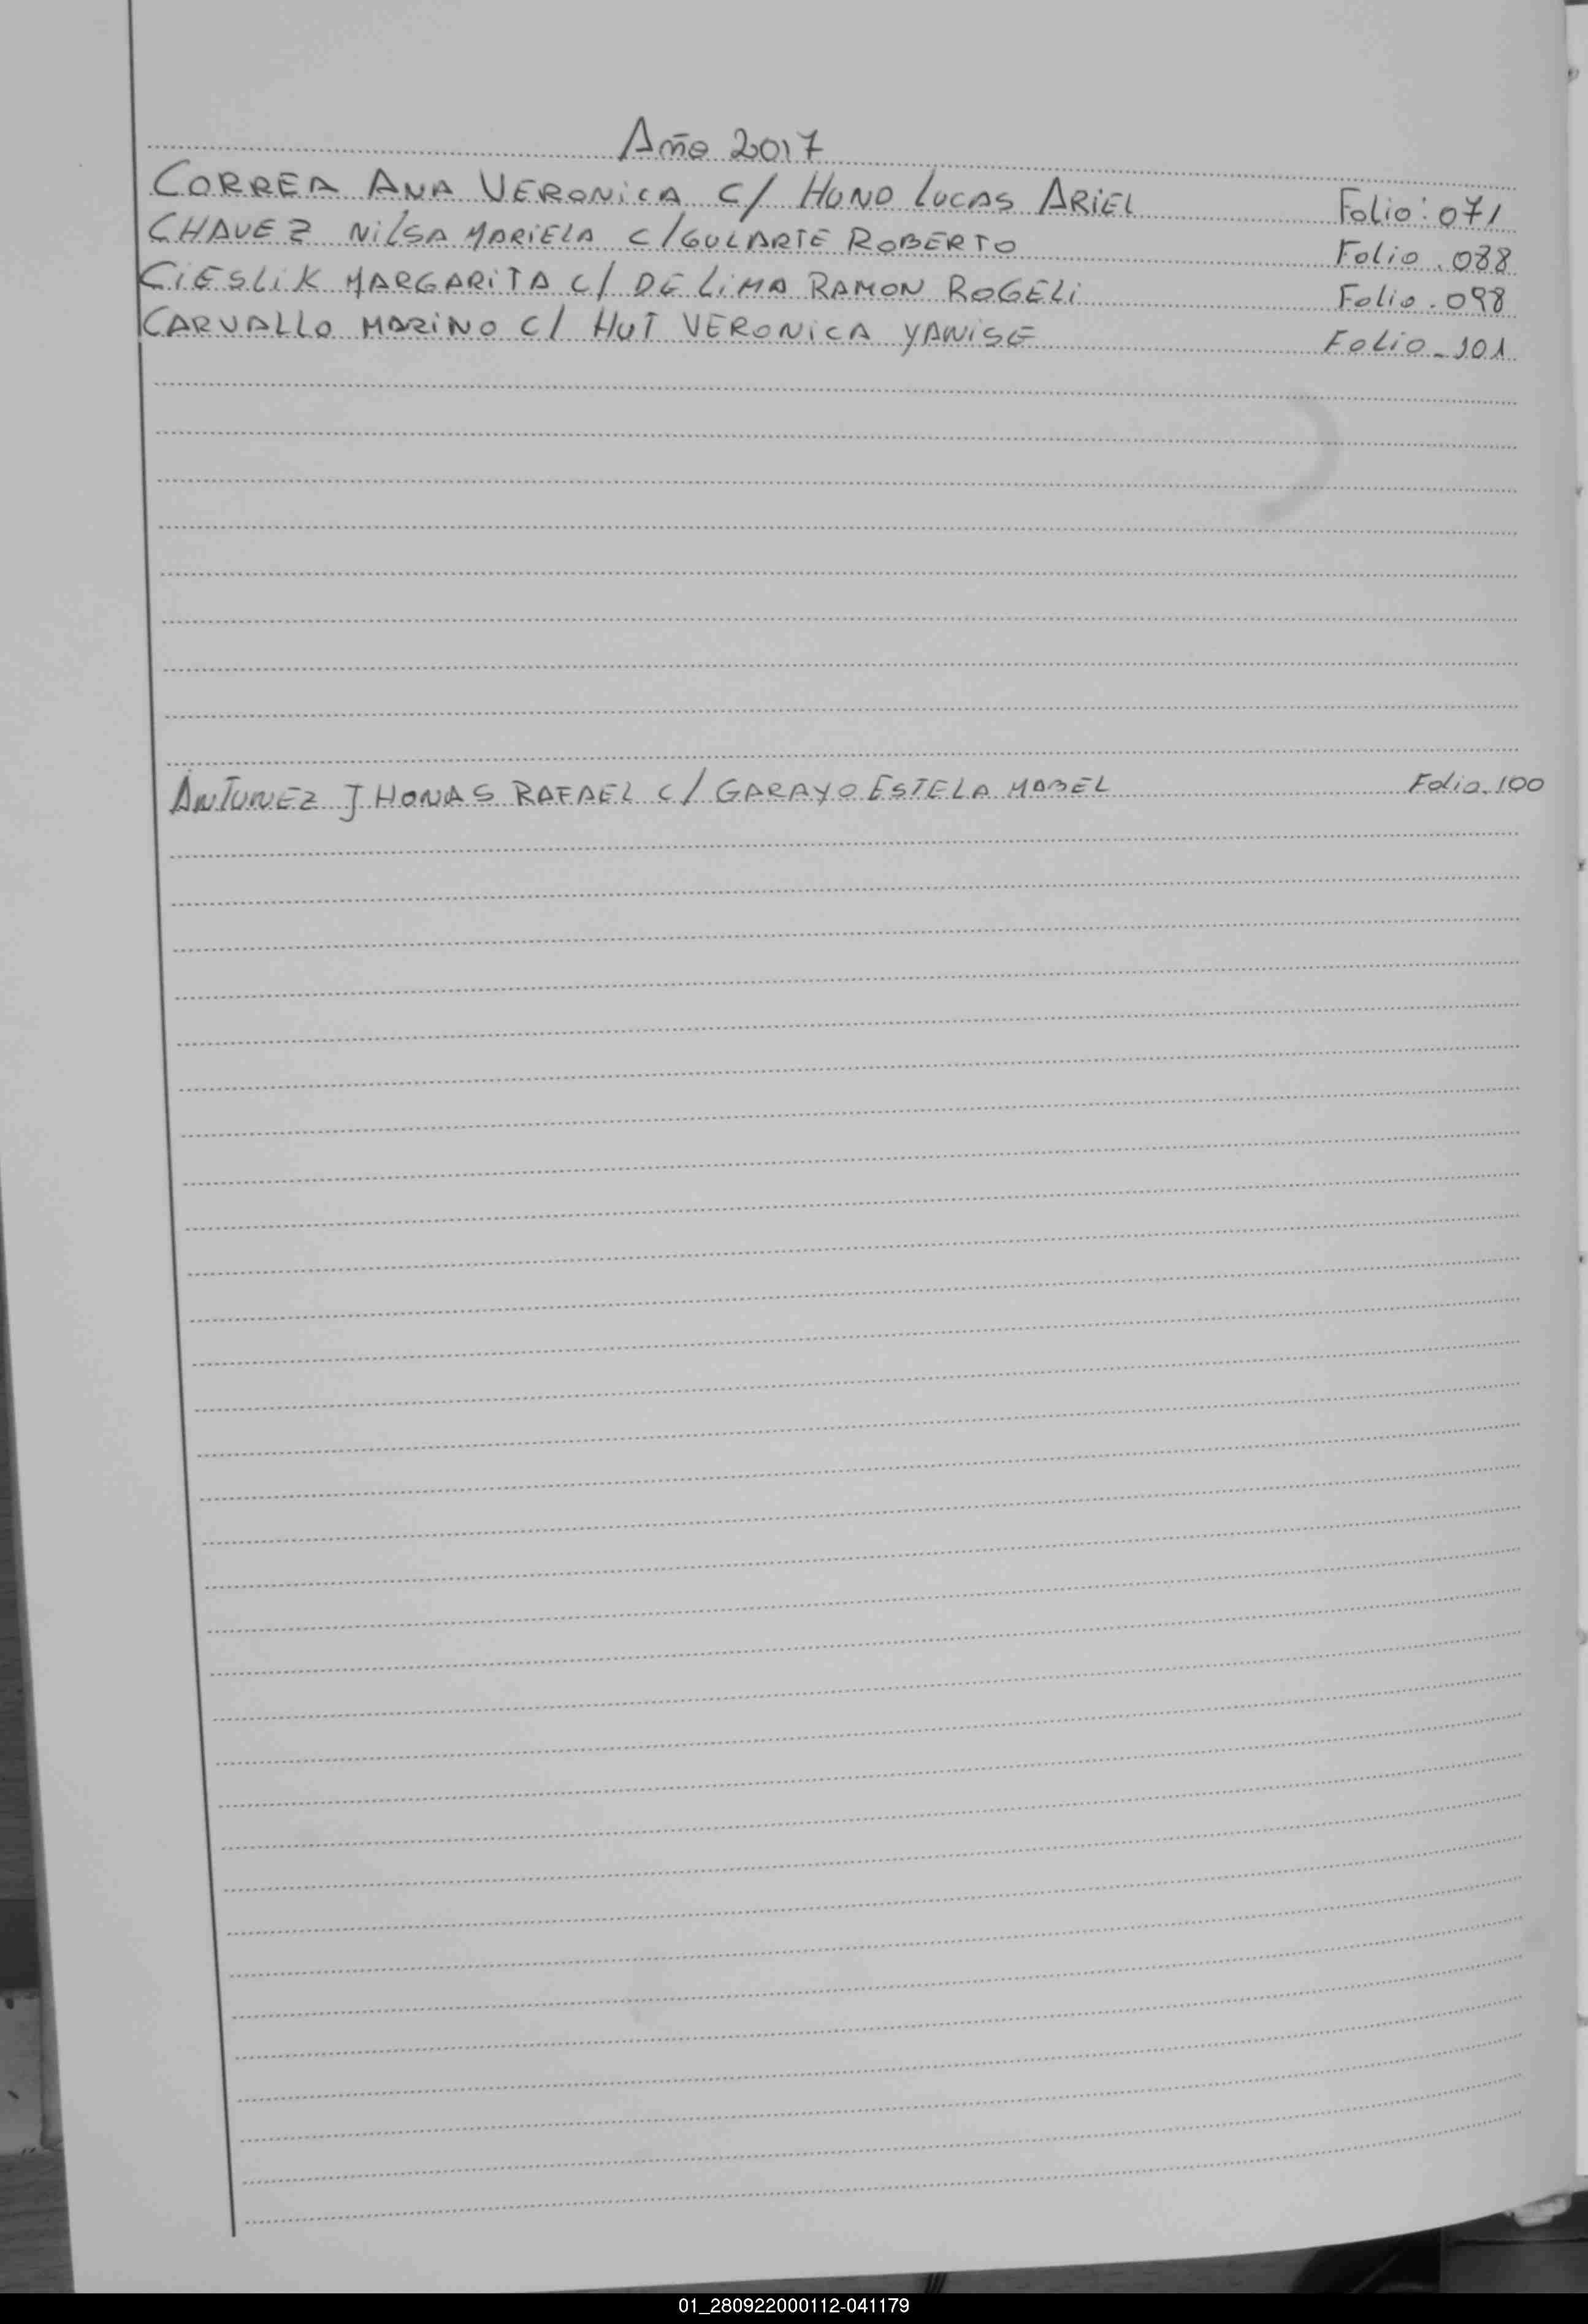 Año 2017
CORREA ANA VERONiCA C/ HUNO LUCAS ARiEL Folio: 071
CHAVEZ NiLSA MARiELA C/ GULARTE ROBERTO Folio. 088
CiESLiK MARGARiTA C/ DE LiMA RAMON ROGELi Folio. 098
CARVALLO MARiNO C/ HUT VERONiCA YANiSE FOLiO_101
ANTUNEZ JHONAS RAFAEL C/ GARAYO ESTELA MABEL Folio. 100
01_280922000112-041179